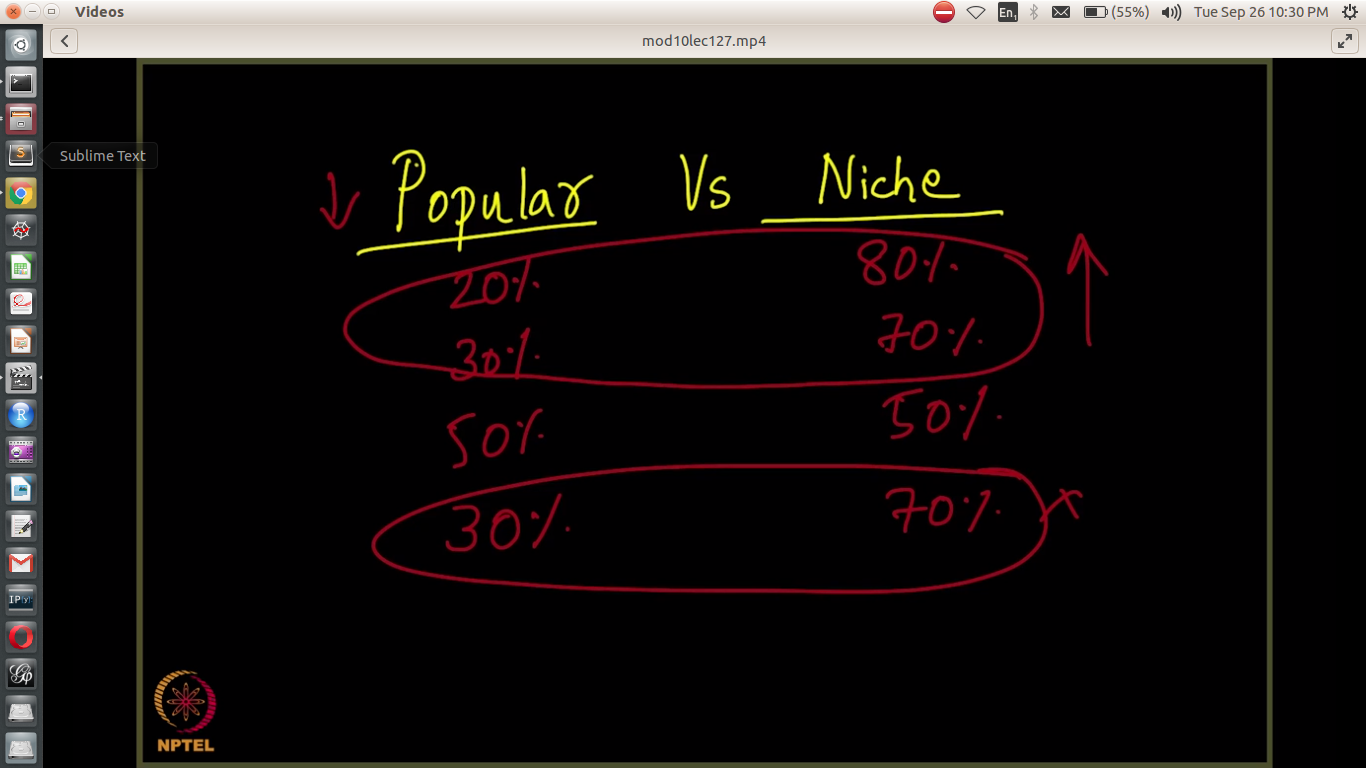 Videos
En1
(55%)
Tue Sep 26 10:30 PM
mod10lec127.mp4
Sublime Text
Popular Vs Niche
20% 80%
30% 70%
50% 50%
30% 70% x
NPTEL